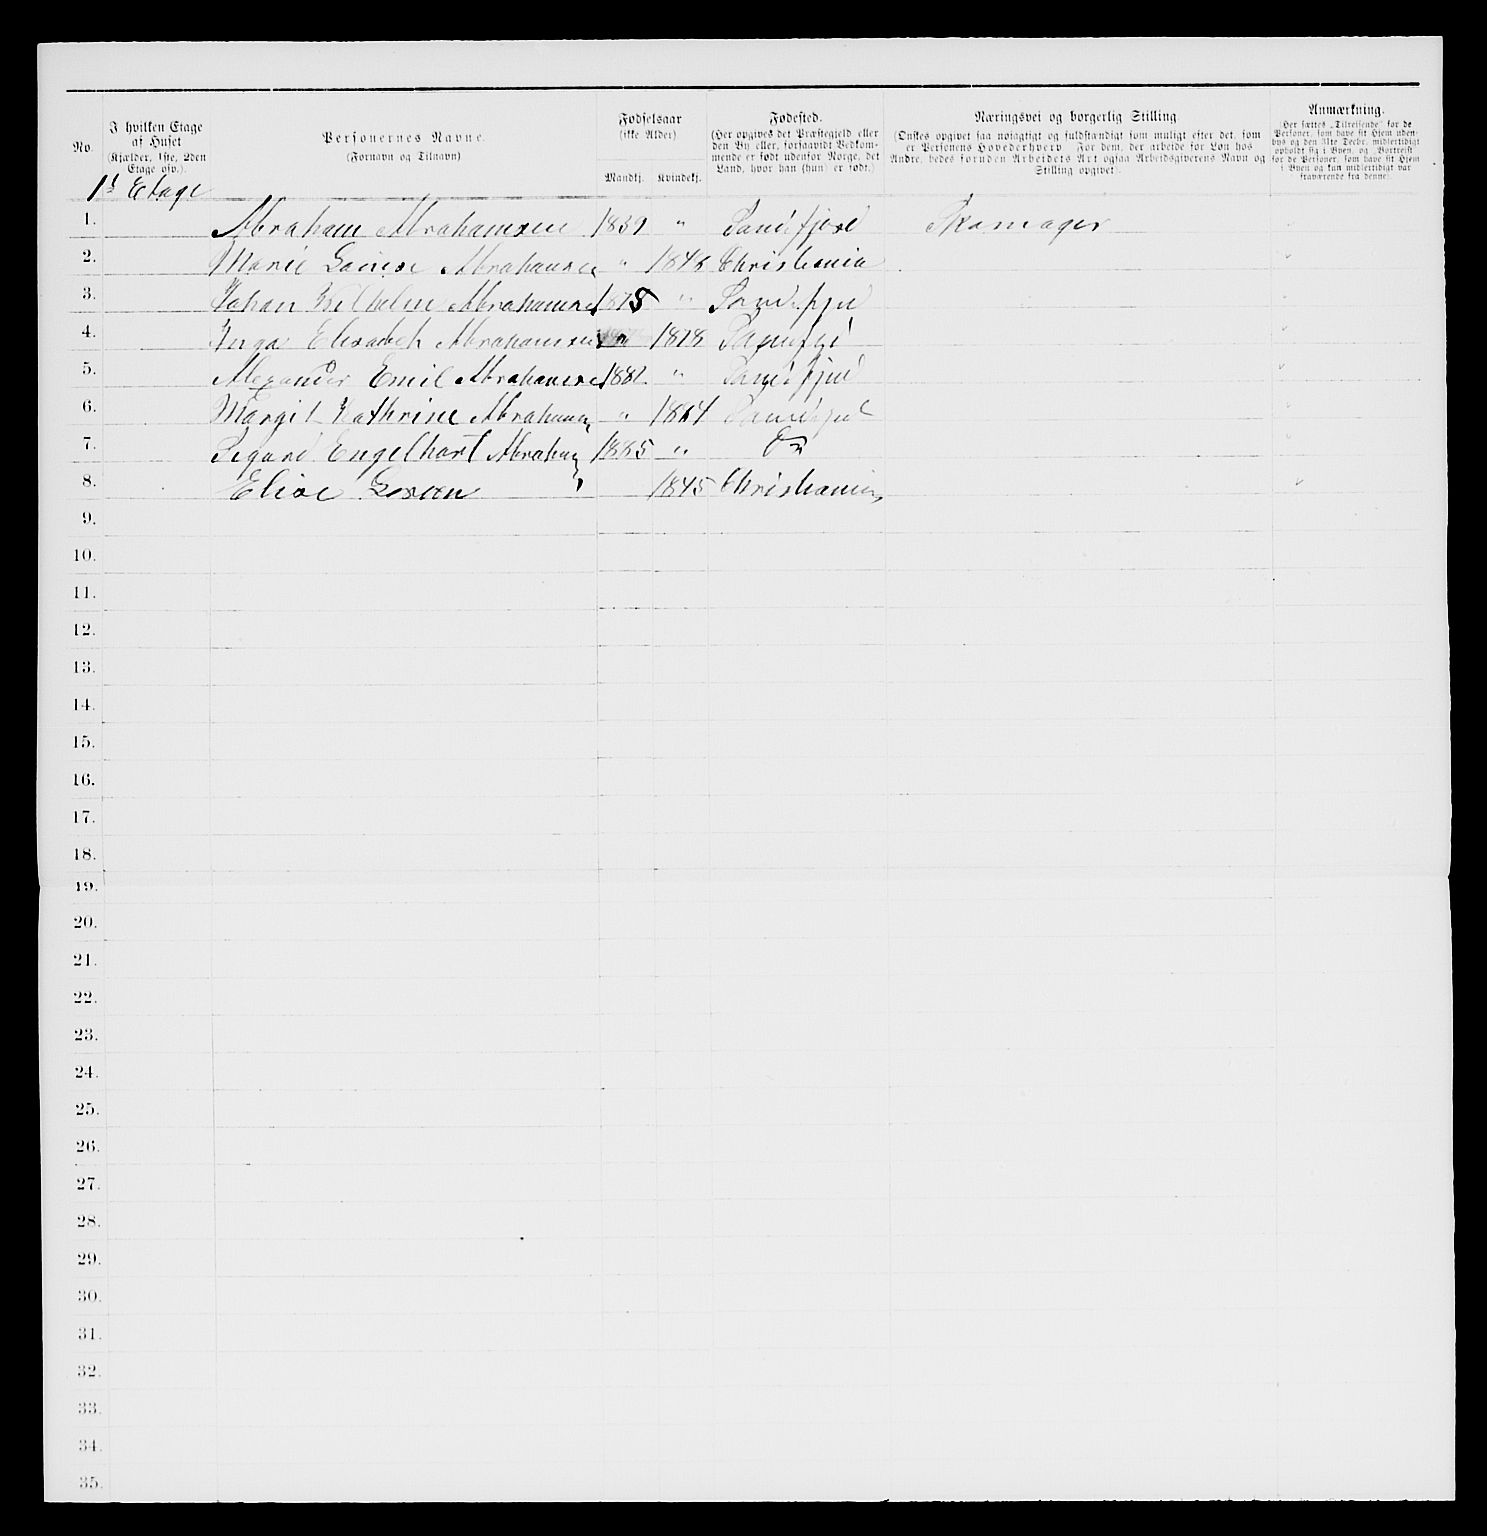 No.
I hvilken Etage af Huset (Kjælder, 1ste, 2den Etage osv.).
Personernes Navne. (Fornavn og Tilnavn)
Fødselsaar (ikke Alder) Mandkj. Kvindekj.
Fødested. (Her opgives det Præstegjeld eller den By eller, forsaavidt Vedkommende er født udenfor Norge, det Land, hvor han (hun) er født.)
Næringsvei og borgerlig Stilling (Ønskes opgivet saa nøiagtigt og fuldstændigt som muligt efter det, som er Personens Hovederhverv. For dem, der arbeide for Løn hos Andre, bedes foruden Arbeidets Art ogsaa Arbeidsgiverens Navn og Stilling opgivet).
Anmærkning. (Her sættes „Tilreisende“ for de Personer, som have sit Hjem udenbys og den 31te Decbr. midlertidigt opholdt sig i Byen, og „Bortreist“ for de Personer, som have sit Hjem i Byen og kun midlertidigt var fraværende fra denne).
1ste Etage
1. Abraham Abrahamsen 1839 " Sandefjord Skomager "
2. Marie Louise Abrahamsen " 1848 Christiania "
3. Johan Wilhelm Abrahamsen 1875 " Sandefjord "
4. Inga Elisabeth Abrahamsen " 1878 "
5. Alexander Emil Abrahamsen 1882 " Sandefjord "
6. Margit Kathrine Abrahamsen " Sandefjord "
7. Sigurd Engelhart Abraham 1885 " Do "
8. Elise 1845 Christiania "
9.
10.
11.
12.
13.
14.
15.
16.
17.
18.
19.
20.
21.
22.
23.
24.
25.
26.
27.
28.
29.
30.
31.
32.
33.
34.
35.